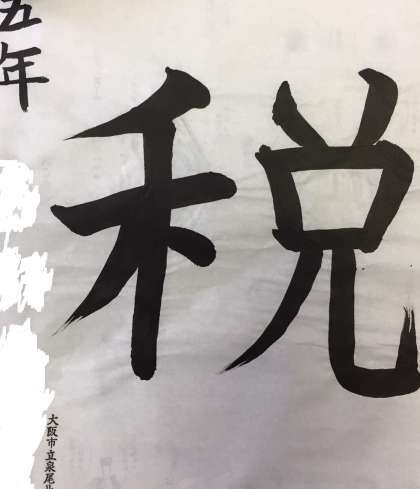 税
五年
大阪市立泉尾